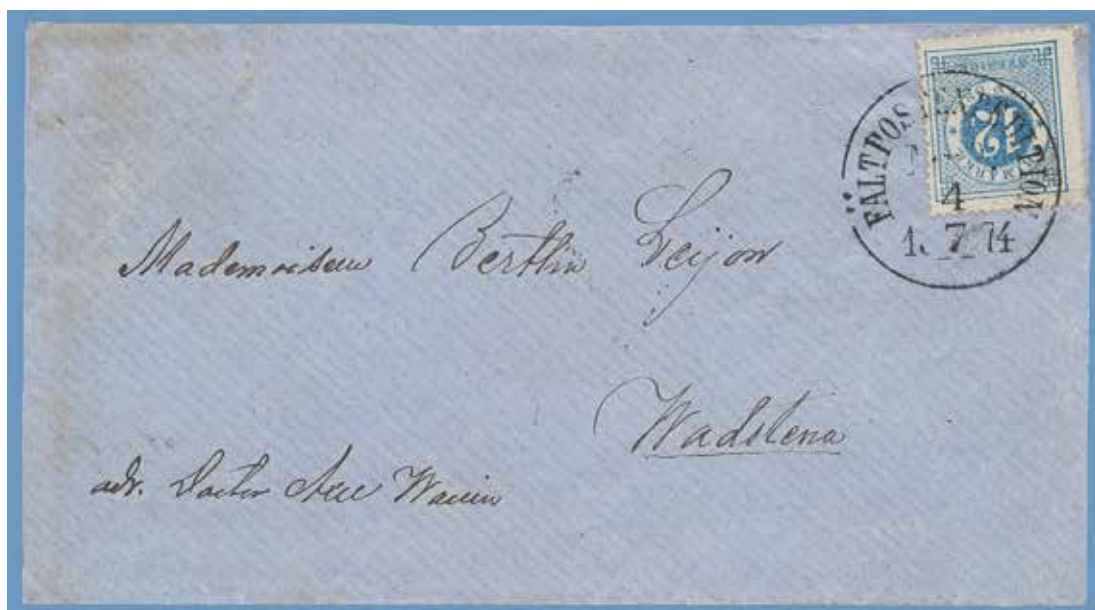 FÄLTPOSTEXPEDITION
4
1. 7. 74
12
Mademoiselle Berthin Leijon
Wadstena
adr. Doctor Axel